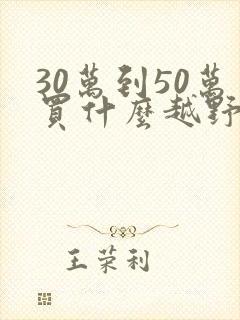 30萬到50萬
買什麼越野
王荣利